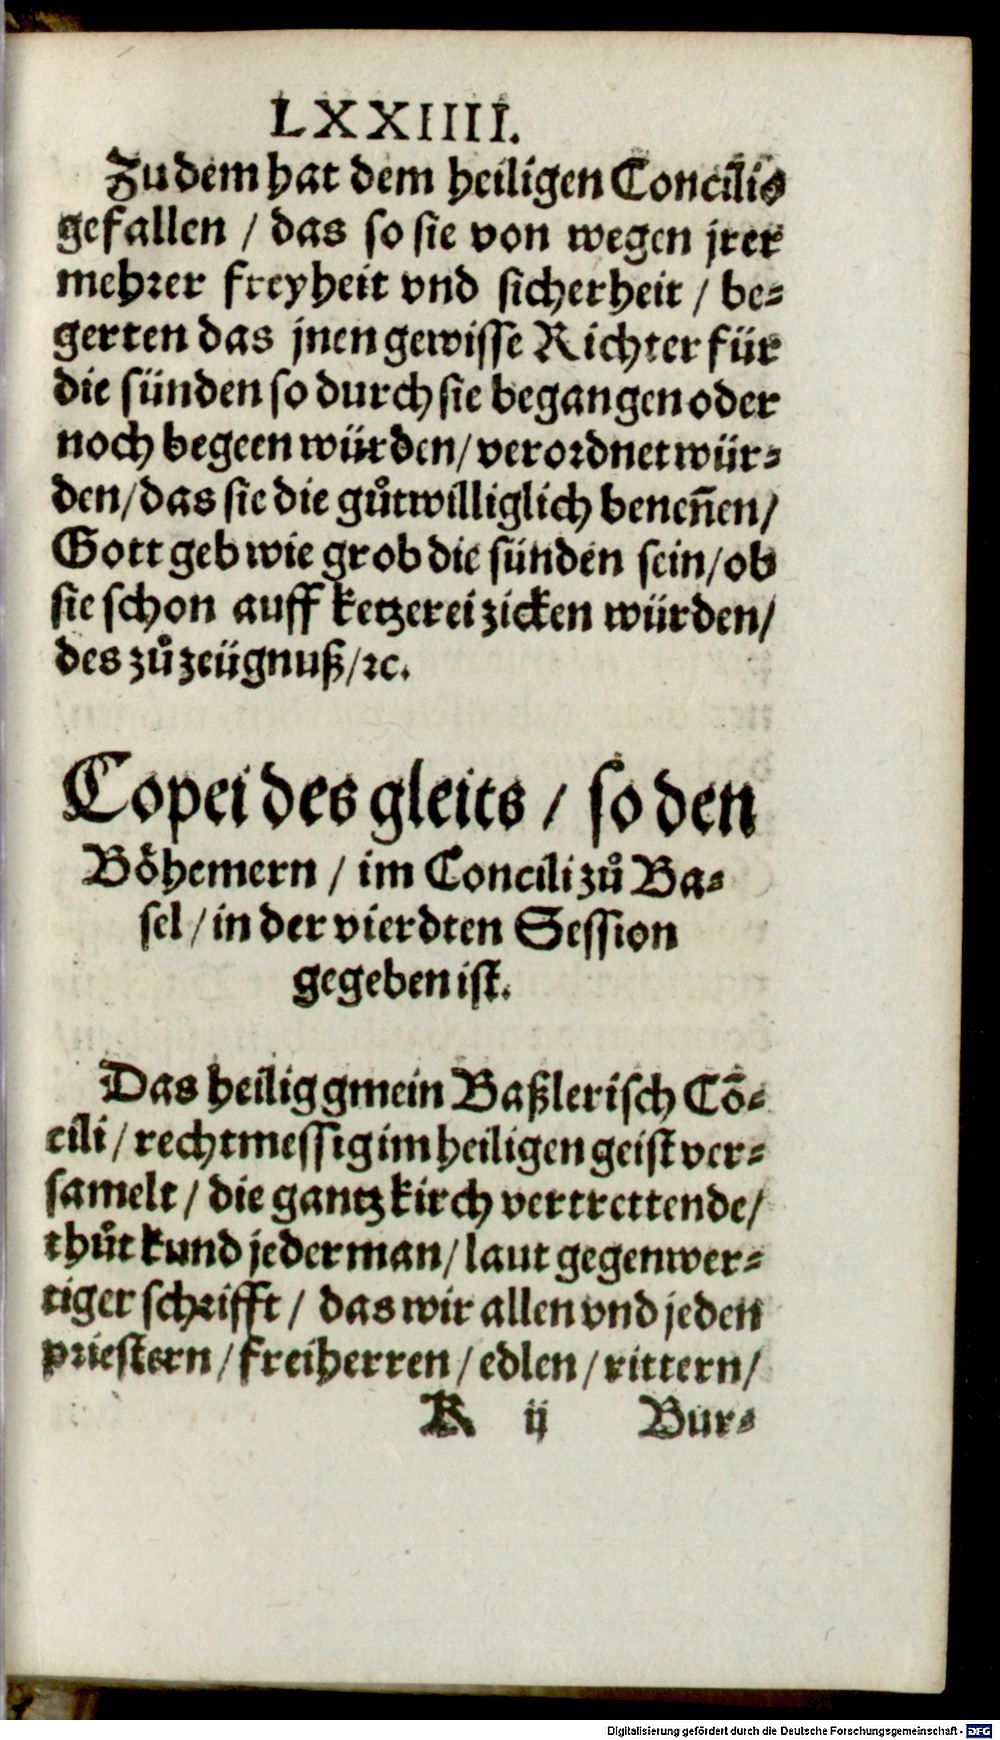 LXXIIII.
Zu dem hat dem heiligen Concilio
gefallen / das so sie von wegen jrer
mehrer freyheit vnd sicherheit / be-
gerten das jnen gewisse Richter für
die sünden so durch sie begangen oder
noch begeen würden / verordnet wür-
den / das sie die gůtwilliglich beneñen /
Gott geb wie grob die sünden sein / ob
sie schon auff ketzerei zicken würden /
des zů zeügnuß / ꝛc.
Copei des gleits / so den
Bőhemern / im Concili zů Ba-
sel / in der vierdten Session
gegeben ist.
Das heilig gmein Baßlerisch Cō-
cili / rechtmessig im heiligen geist ver-
samelt / die gantz kirch vertrettende /
thůt kund jederman / laut gegenwer-
tiger schrifft / das wir allen vnd jeden
priestern / freiherren / edlen / rittern /
K ij Bur-
Digitalisierung gefördert durch die Deutsche Forschungsgemeinschaft - DFG